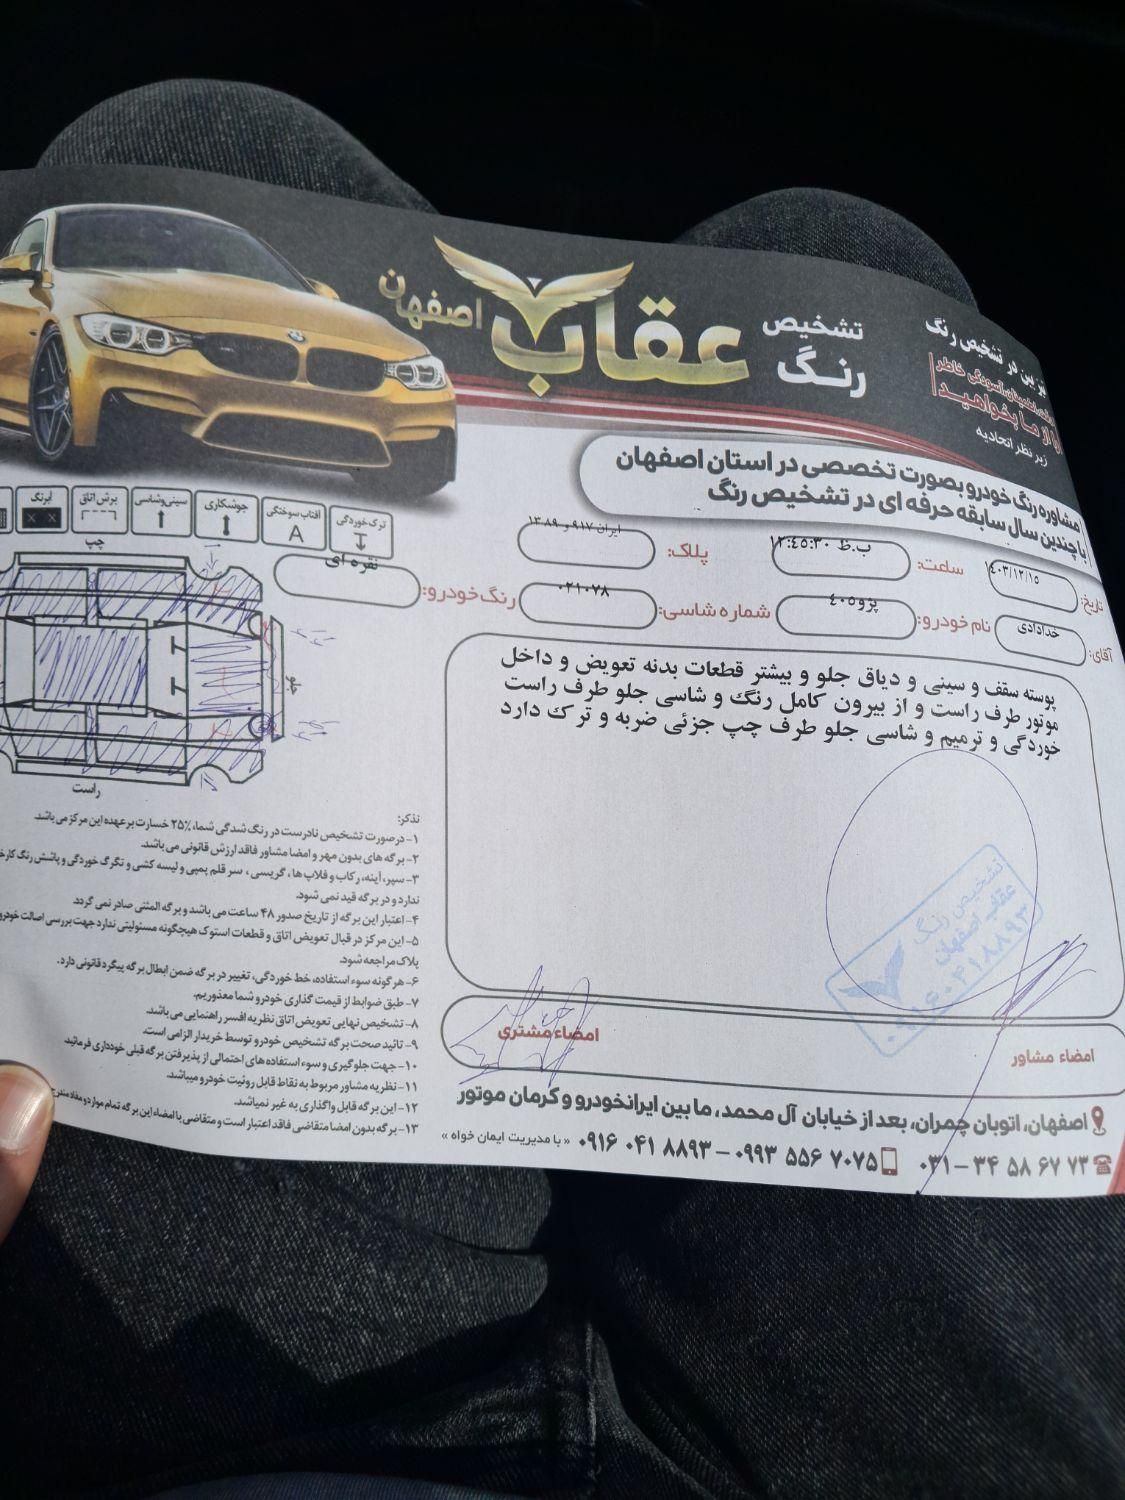 تشخیص
رنگ
عقاب
اصفهان
در تشخیص رنگ
از ما بخواهید
زیر نظر اتحادیه
مشاوره رنگ خودرو بصورت تخصصی در استان اصفهان
با چندین سال سابقه حرفه ای در تشخیص رنگ
ترک خوردگی
آفتاب سوختگی
A
جوشکاری
سینی وشاسی
برش اتاق
آبرنگ
تاریخ:
۱۴۰۳/۱۲/۱۵
ساعت:
۱۲:٤٥:۳۰ ب.ظ
پلاک:
آقای:
خدادادی
نام خودرو:
پژو٤۰۵
شماره شاسی:
۰۲۱۰۷۸
رنگ خودرو:
نقره ای
چپ
جلو
راست
پوسته سقف و سینی و دیاق جلو و بیشتر قطعات بدنه تعویض و داخل
موتور طرف راست و از بیرون کامل رنگ و شاسی جلو طرف راست
خوردگی و ترمیم و شاسی جلو طرف چپ جزئی ضربه و ترک دارد
تذکر:
۱- درصورت تشخیص نادرست در رنگ شدگی شما، ۲۵٪ خسارت برعهده این مرکز می باشد.
۲- برگه های بدون مهر و امضا مشاور فاقد ارزش قانونی می باشد.
۳- سپر، آینه، رکاب و فلاپ ها، گریسی، سر قلم پمپی و لیسه کشی و تگرگ خوردگی و پاشش رنگ
ندارد و در برگه قید نمی شود.
۴- اعتبار این برگه از تاریخ صدور ۴۸ ساعت می باشد و برگه المثنی صادر نمی گردد.
۵- این مرکز در قبال تعویض اتاق و قطعات استوک هیچگونه مسئولیتی ندارد جهت بررسی اصالت خودرو
پلاک مراجعه شود.
۶- هرگونه سوء استفاده، خط خوردگی، تغییر در برگه ضمن ابطال برگه پیگرد قانونی دارد.
۷- طبق ضوابط از قیمت گذاری خودرو شما معذوریم.
۸- تشخیص نهایی تعویض اتاق نظریه افسر راهنمایی می باشد.
۹- تائید صحت برگه تشخیص خودرو توسط خریدار الزامی است.
۱۰- جهت جلوگیری و سوء استفاده های احتمالی از پذیرفتن برگه قبلی خودداری فرمائید.
۱۱- نظریه مشاور مربوط به نقاط قابل روئیت خودرو میباشد.
۱۲- این برگه قابل واگذاری به غیر نمیباشد.
۱۳- برگه بدون امضا متقاضی فاقد اعتبار است و متقاضی با امضاء این برگه تمام موارد و مفاد
تشخیص رنگ
عقاب اصفهان
امضاء مشتری
امضاء مشاور
اصفهان، اتوبان چمران، بعد از خیابان آل محمد، ما بین ایرانخودرو و کرمان موتور
۰۳۱ - ۳۴ ۵۸ ۶۷ ۷۳
۰۹۱۶ ۰۴۱ ۸۸۹۳ - ۰۹۹۳ ۵۵۶ ۷۰۷۵
« با مدیریت ایمان خواه »